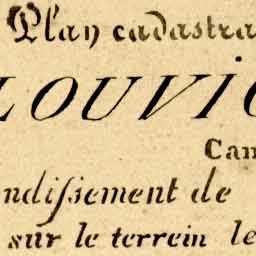 Plan cadastra
LOUVIC
Can
ndiſsement de
sur le terrein le